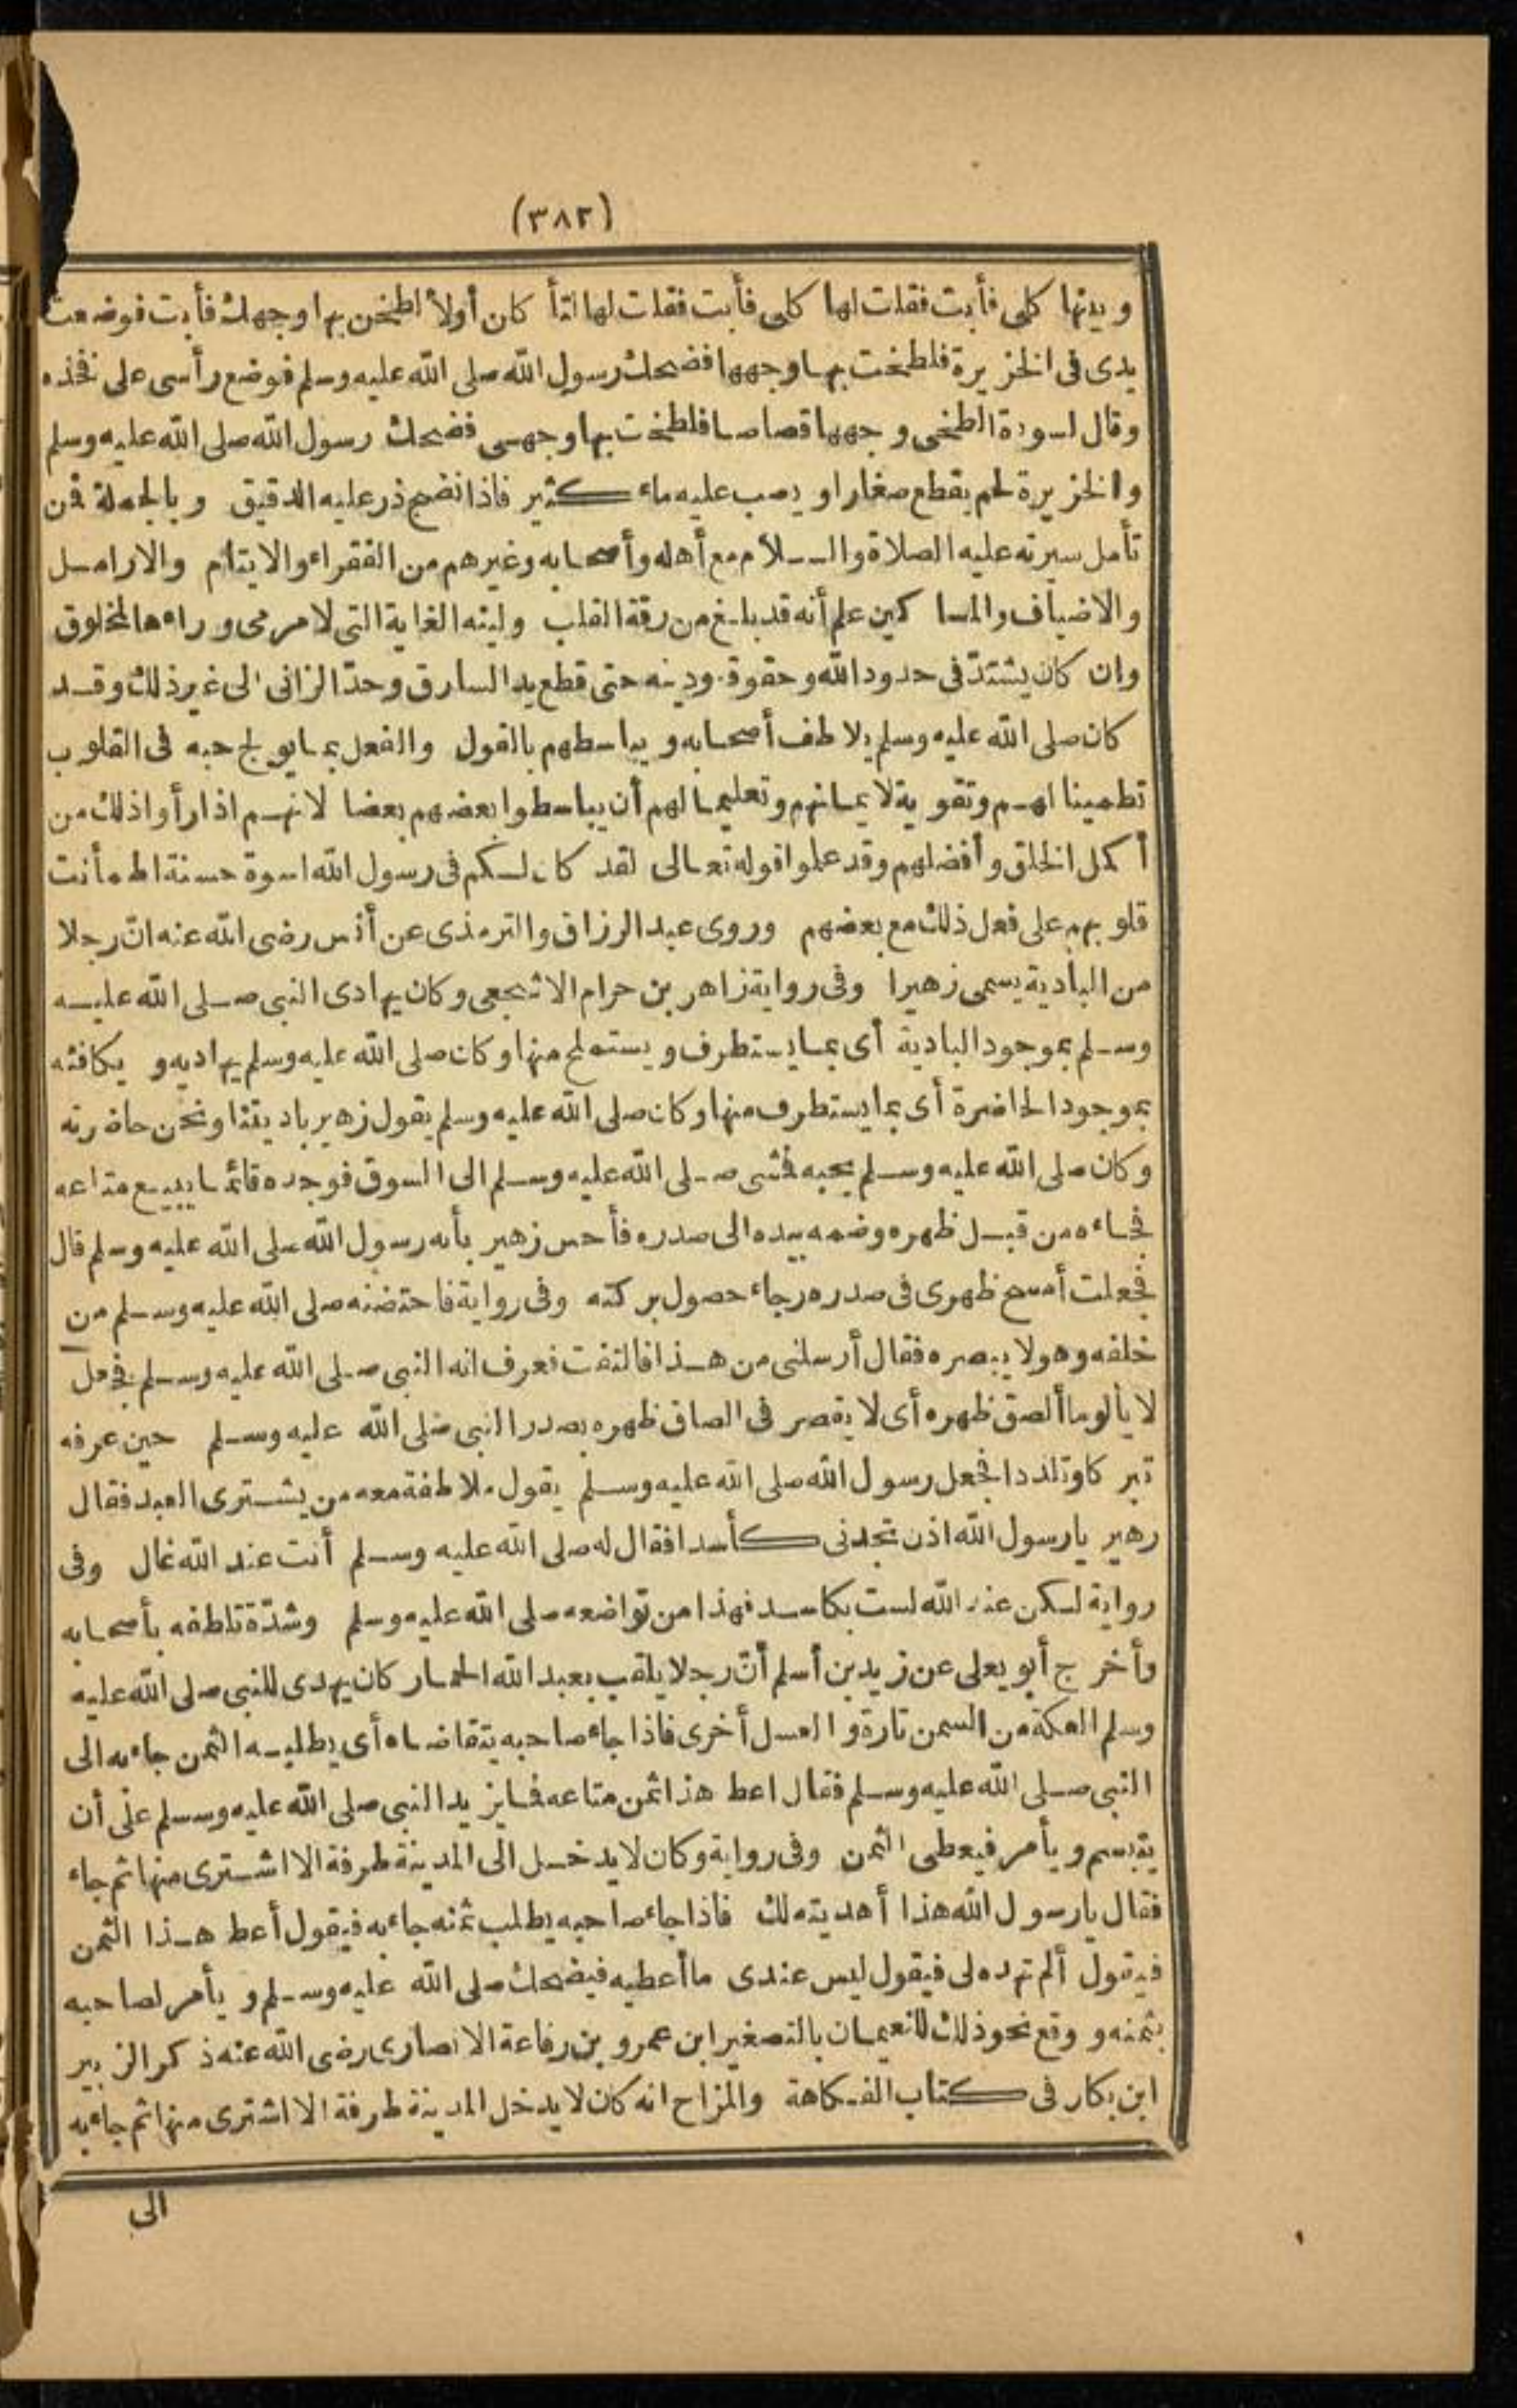 (٣٨٢)
وبينها كلى فأبت فقلت لها كلى فأبت فقلت لها لتأ كان أولا لطخن بها وجهك فأبت فوضعت
يدى فى الخزيرة فلطخت بها وجهها فضحك رسول الله صلى الله عليه وسلم فوضع رأسى على فخذه
وقال لسودة الطخى وجهها قصاصا فلطخت بها وجهى فضحك رسول الله صلى الله عليه وسلم
والخزيرة لحم يقطع صغارا ويصب عليه ماء كثير فاذا نضج ذر عليه الدقيق وبالجملة فمن
تأمل سيرته عليه الصلاة والسلام مع أهله وأصحابه وغيرهم من الفقراء والايتام والارامل
والاضياف والمساكين علم أنه قد بلغ من رقة القلب ولينه الغاية التى لا مرمى وراءها لمخلوق
وان كان يشتد فى حدود الله وحقوقه ودينه حتى قطع يد السارق وحد الزانى الى غير ذلك وقد
كان صلى الله عليه وسلم يلاطف أصحابه ويباسطهم بالقول والفعل بما يولج حبه فى القلوب
تطمينا لهم وتقوية لايمانهم وتعليما لهم أن يباسطوا بعضهم بعضا لانهم اذا رأوا ذلك من
أكمل الخلق وأفضلهم وقد علموا قوله تعالى لقد كان لكم فى رسول الله اسوة حسنة اطمأنت
قلوبهم على فعل ذلك مع بعضهم وروى عبد الرزاق والترمذى عن أنس رضى الله عنه انّ رجلا
من البادية يسمى زهيرا وفى رواية زاهر بن حرام الاشجعى وكان يهادى النبى صلى الله عليه
وسلم بموجود البادية أى بما يستطرف ويستملح منها وكان صلى الله عليه وسلم يهاديه ويكافئه
بموجود الحاضرة أى بما يستطرف منها وكان صلى الله عليه وسلم يقول زهير باديتنا ونحن حاضرته
وكان صلى الله عليه وسلم يحبه فمشى صلى الله عليه وسلم الى السوق فوجده قائما يبيع متاعه
فجاءه من قبل ظهره وضمه بيده الى صدره فأحس زهير بأنه رسول الله صلى الله عليه وسلم قال
فجعلت أمسح ظهرى فى صدره رجاء حصول بركته وفى رواية فاحتضنه صلى الله عليه وسلم من
خلفه وهو لا يبصره فقال أرسلنى من هذا فالتفت فعرف انه النبى صلى الله عليه وسلم فجعل
لا يألو ما ألصق ظهره أى لا يقصر فى الصاق ظهره بصدر النبى صلى الله عليه وسلم حين عرفه
تبركا وتلذذا فجعل رسول الله صلى الله عليه وسلم يقول ملاطفة معه من يشترى العبد فقال
زهير يارسول الله اذن تجدنى كأسدا فقال له صلى الله عليه وسلم أنت عند الله غال وفى
رواية لكن عند الله لست بكاسد فهذا من تواضعه صلى الله عليه وسلم وشدّة تلاطفه بأصحابه
وأخرج أبو يعلى عن زيد بن أسلم أنّ رجلا يلقب بعبد الله الحمار كان يهدى للنبى صلى الله عليه
وسلم العكة من السمن تارة والعسل أخرى فاذا جاء صاحبه يتقاضاه أى يطلبه الثمن جاء به الى
النبى صلى الله عليه وسلم فقال اعط هذا ثمن متاعه فما يزيد النبى صلى الله عليه وسلم على أن
يتبسم ويأمر فيعطى الثمن وفى رواية وكان لا يدخل الى المدينة طرفة الا اشترى منها ثم جاء
فقال يارسول الله هذا أهديته لك فاذا جاء صاحبه يطلب ثمنه جاء به فيقول أعط هذا الثمن
فيقول ألم تهده لى فيقول ليس عندى ما أعطيه فيضحك صلى الله عليه وسلم ويأمر لصاحبه
بثمنه ووقع نحو ذلك للنعيمان بالتصغير ابن عمرو بن رفاعة الانصارى رضى الله عنه ذكر الزبير
ابن بكار فى كتاب الفكاهة والمزاح انه كان لا يدخل المدينة طرفة الا اشترى منها ثم جاء به
الى